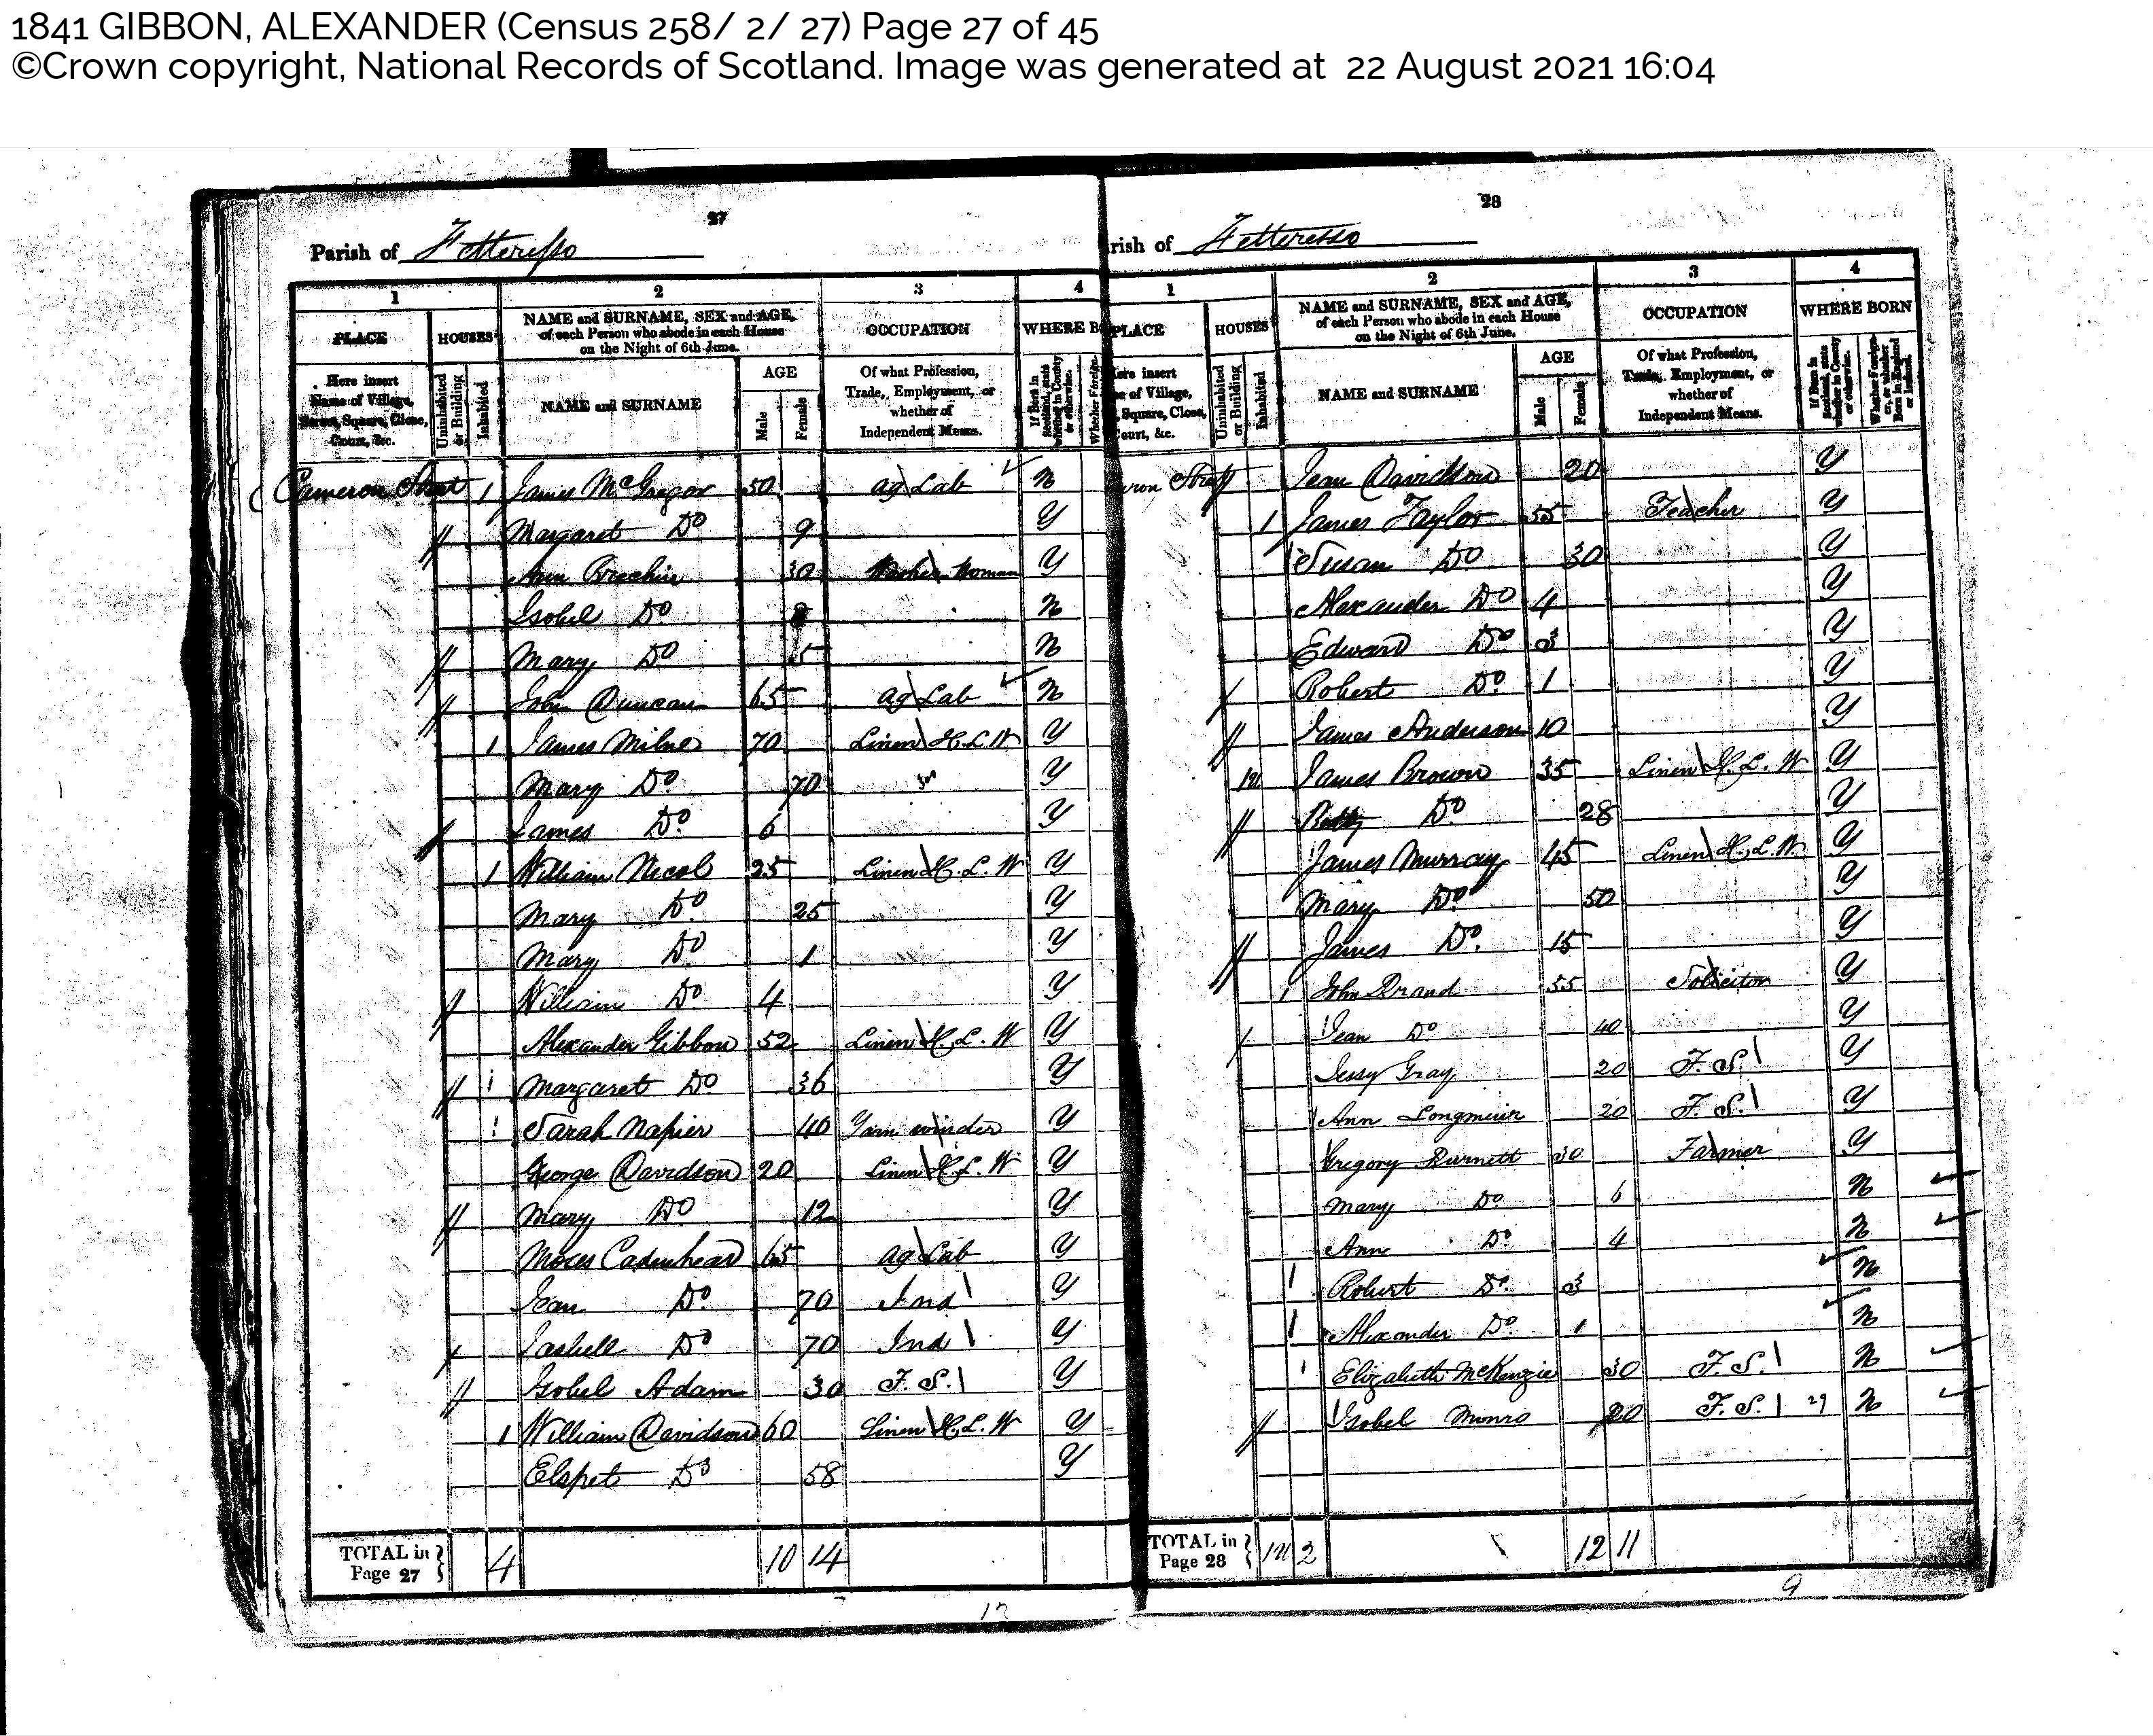 1841 GIBBON, ALEXANDER (Census 258/ 2/ 27) Page 27 of 45
©Crown copyright, National Records of Scotland. Image was generated at 22 August 2021 16:04
27
Parish of Fetteresso
1 2 3 4
PLACE HOUSES NAME and SURNAME, SEX and AGE, of each Person who abode in each House on the Night of 6th June. OCCUPATION WHERE B
Here insert Name of Village, Street, Square, Close, Court, &c. Uninhabited or Building Inhabited NAME and SURNAME AGE Male Female Of what Profession, Trade, Employment, or whether of Independent Means. If Born in Scotland, state whether in County or otherwise. Whether Foreign-
Cameron Street 1 James McGregor 50 Ag Lab N
Margaret Do 9 Y
Ann Brechin 30 Washer Woman Y
Isobel Do N
Mary Do 5 N
John Duncan 65 Ag Lab N
1 James Milne 70 Linen H.L.W Y
Mary Do 70 Y
James Do 6 Y
1 William Nicol 25 Linen H.L.W Y
Mary Do 25 Y
Mary Do 1 Y
William Do 4 Y
Alexander Gibbon 52 Linen H.L.W Y
Margaret Do 36 Y
Sarah Napier 40 Yarn winder Y
George Davidson 20 Linen H.L.W Y
Mary Do 12 Y
Moses Cadenhead 65 Ag Lab Y
Jean Do 70 Ind Y
Isabell Do 70 Ind Y
Isobel Adam 30 F.S. Y
1 William Davidson 60 Linen H.L.W Y
Elspet Do 58 Y
TOTAL in Page 27 4 10 14
28
rish of Fetteresso
1 2 3 4
PLACE HOUSES NAME and SURNAME, SEX and AGE, of each Person who abode in each House on the Night of 6th June. OCCUPATION WHERE BORN
ere insert e of Village, Square, Close, ourt, &c. Uninhabited or Building Inhabited NAME and SURNAME AGE Male Female Of what Profession, Trade, Employment, or whether of Independent Means. If Born in Scotland, state whether in County or otherwise. Whether Foreigner, or whether Born in England or Ireland.
eron Street Jean Davidson 20 Y
1 James Taylor 55 Teacher Y
Susan Do 30 Y
Alexander Do 4 Y
Edward Do 3 Y
Robert Do 1 Y
James Anderson 10 Y
James Brown 35 Linen H.L.W Y
Betty Do 28 Y
James Murray 45 Linen H.L.W. Y
Mary Do 50 Y
James Do 15 Y
1 John Brand 55 Solicitor Y
Jean Do 40 Y
Jessy Gray 20 F.S. Y
Ann Longmuir 20 F.S. Y
Gregory Burnett 30 Farmer Y
Mary Do 6 N
Ann Do 4 N
Robert Do 3 N
Alexander Do 1 N
Elizabeth McKenzie 30 F.S. N
Isobel Munro 20 F.S. 29 N
TOTAL in Page 28 2 12 11
9